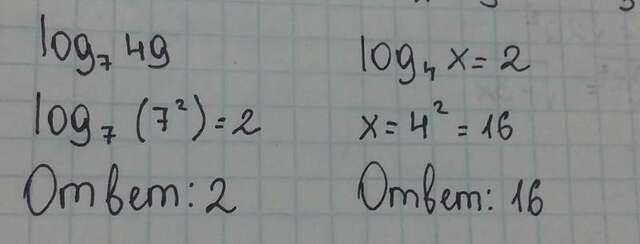 log₇ 49
log₇ (7²) = 2
Ответ: 2
log₄ x = 2
x = 4² = 16
Ответ: 16